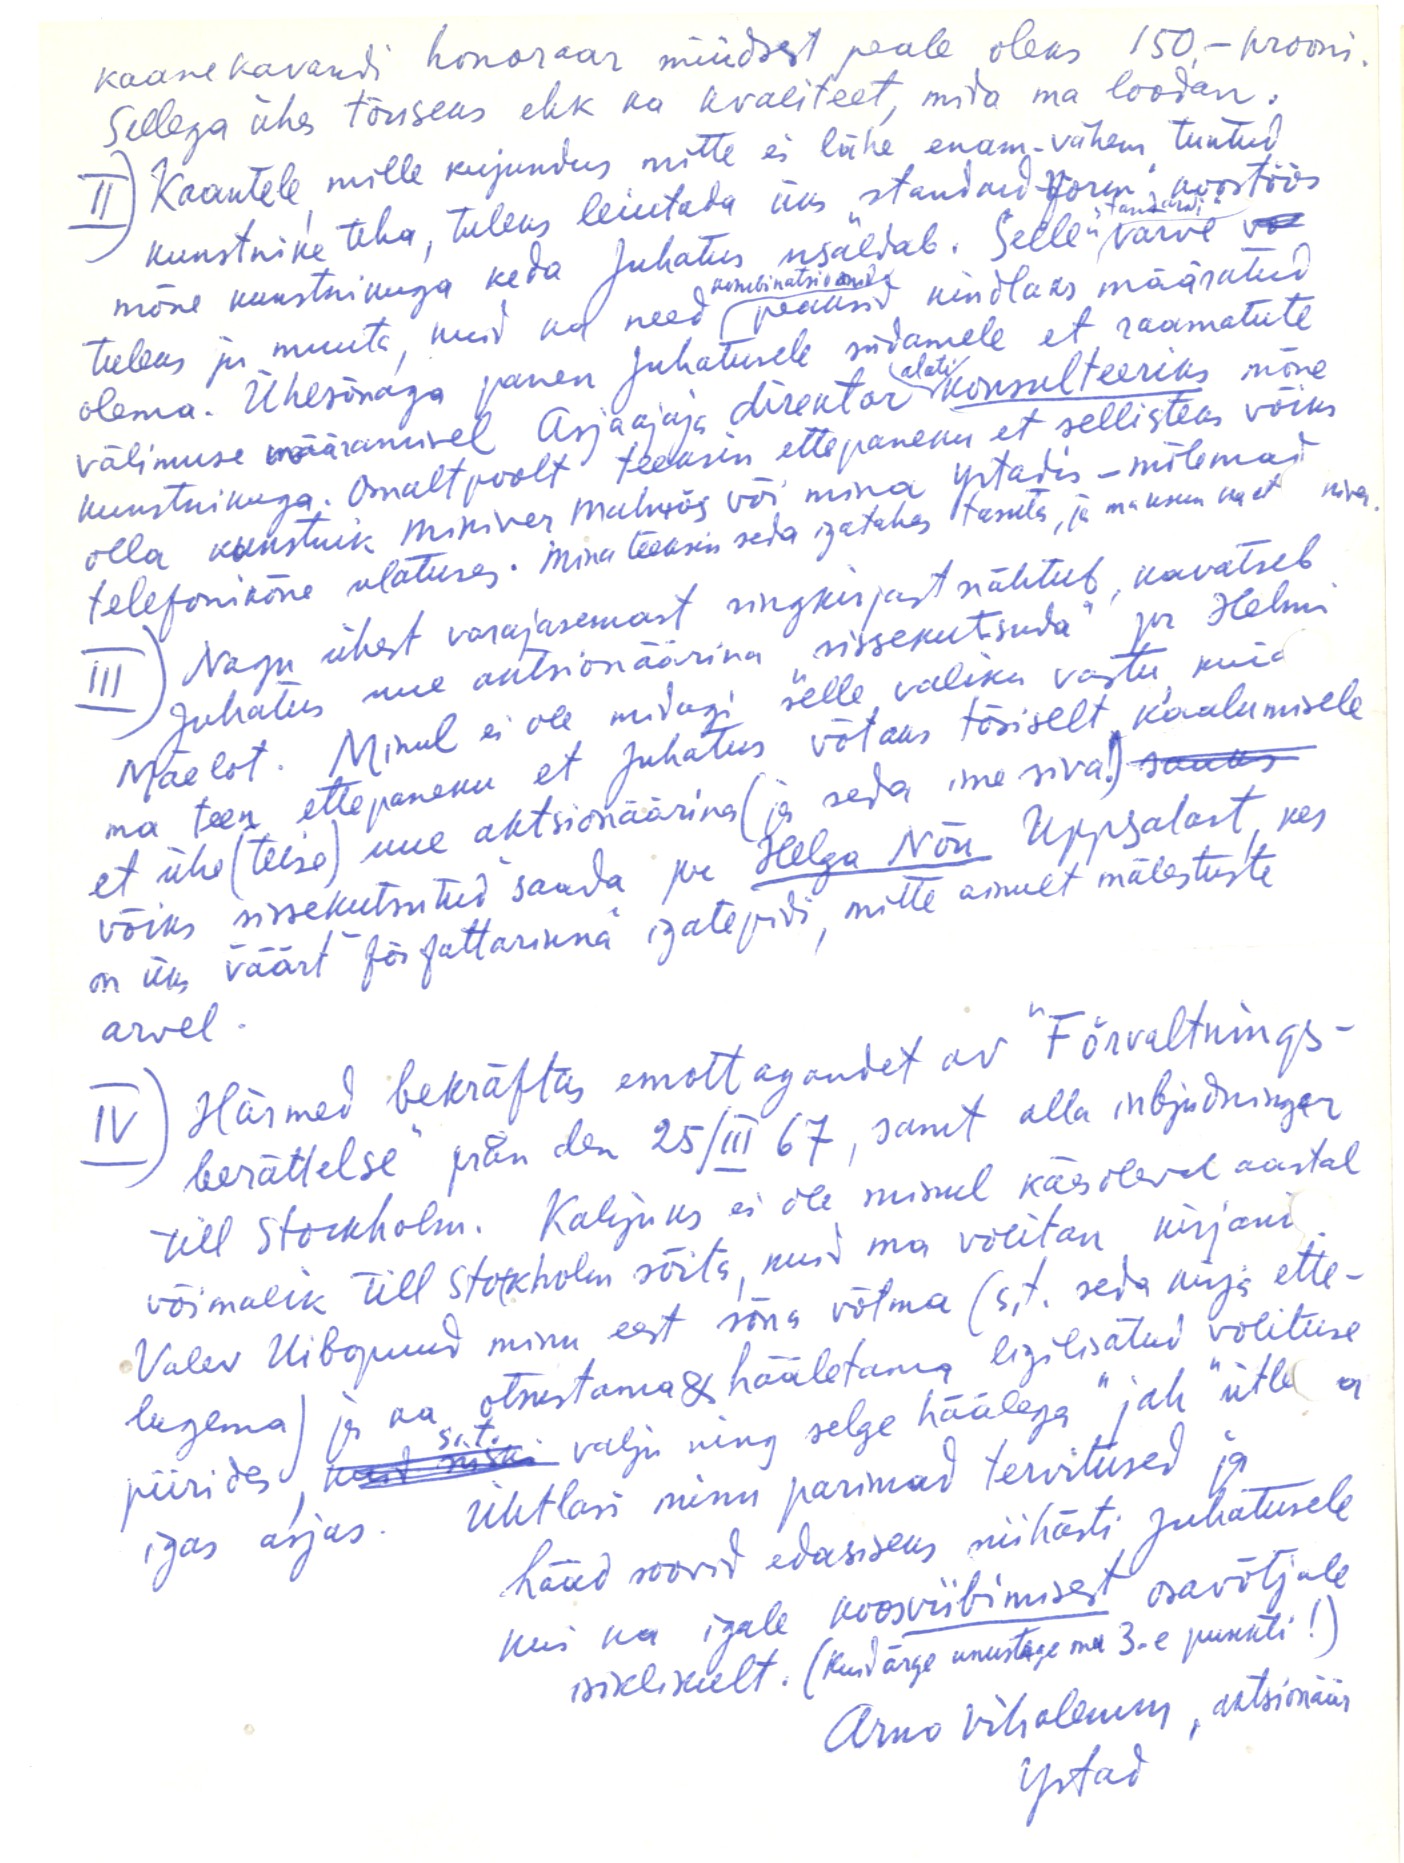 kaanekavandi honoraar müüdsest peale oleks 150,- krooni.
Sellega ühes tõuseks ehk ka kvaliteet, mida ma loodan.
II) Kaantele, mille kujundus mitte ei lähe enam-vähem tuntud
kunstnike teha, tuleks leiutada üks "standard-vorm", koostöös
mõne kunstnikuga keda Juhatus usaldab. Selle "standardi" värve
tuleks ju muuta, kuid ka need kombinatsioonid peaksid kindlaks määratud
olema. Ühesõnaga panen Juhatusele südamele et raamatute
välimuse määramisel Asjaajaja direktor alati konsulteeriks mõne
kunstnikuga. Omaltpoolt teeksin ettepaneku et sellisteks võiks
olla kunstnik Miniver Malmös või mina Ystadis – mõlemad
telefonikõne ulatuses. Mina teeksin seda igatahes tasuta, ja maksan ka et
III) Nagu ühest varajasemast ringkirjast nähtub, kavatseb
Juhatus uue aktsionäärina "sissekutsuda" pr Helmi
Mäelot. Minul ei ole midagi selle valiku vastu, kuid
ma teen ettepaneku et Juhatus võtaks tõsiselt kaalumisele
et ühe (teise) uue aktsionäärina (ja seda ime siva!) saaks
võiks sissekutsutud saada pr Helga Nõu Uppsalast, kes
on üks väärt "författarinna" igatepidi, mitte ainult mälestuste
arvel.
IV) Härmed bekräftas emottagandet av "Förvaltnings-
berättelse" från den 25/III 67, samt alla inbjudningar
till Stockholm. Kahjuks ei ole minul käesoleval aastal
võimalik till Stockholm sõita, kuid ma volitan kirjanik
Valev Uibopuud minu eest sõna võtma (s.t. seda kirja ette-
lugema) ja ka otsustama & hääletama ligilisatud volituse
piirides, s.t. valju ning selge häälega "jah" ütlema
igas asjas. Ühtlasi minu parimad tervitused ja
hääd soovid edasiseks niihästi Juhatusele
kui ka igale koosviibimisest osavõtjale
isiklikult. (Kuid ärge unustage ma 3-e punkti!)
Arno Vihalemm, aktsionäär
Ystad